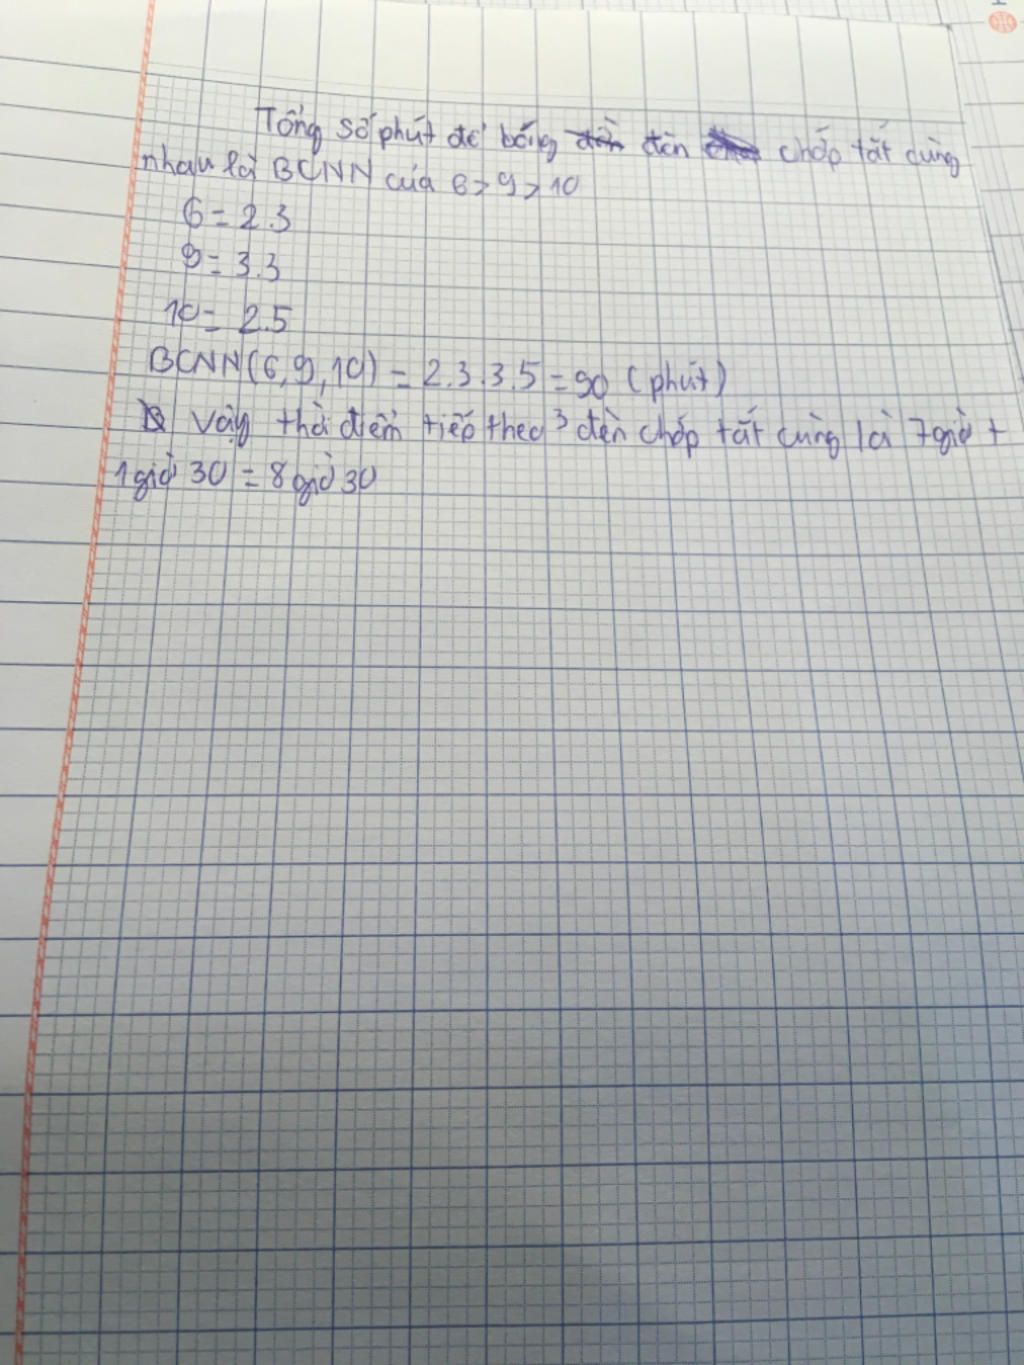 Tổng số phút để bóng đèn chớp tắt cùng
nhau là BCNN của 6 > 9 > 10
6 = 2.3
9 = 3.3
10 = 2.5
BCNN(6,9,10) = 2.3.3.5 = 90 (phút)
Vậy thời điểm tiếp theo 3 đèn chớp tắt cùng là 7giờ +
1giờ 30 = 8 giờ 30